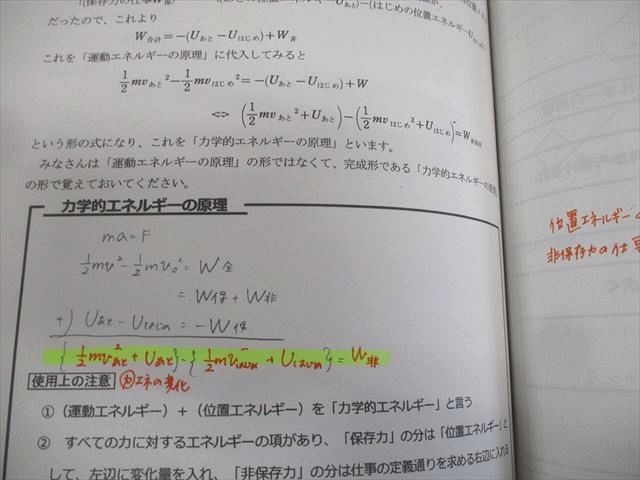 だったので、これより
W合計 = -(Uあと - Uはじめ) + W非
これを「運動エネルギーの原理」に代入してみると
1/2 mvあと² - 1/2 mvはじめ² = -(Uあと - Uはじめ) + W
⇔ (1/2 mvあと² + Uあと) - (1/2 mvはじめ² + Uはじめ) = W非保存
という形の式になり、これを「力学的エネルギーの原理」といいます。
みなさんは「運動エネルギーの原理」の形ではなくて、完成形である「力学的エネルギーの原理」
の形で覚えておいてください。
力学的エネルギーの原理
ma = F
1/2 mv² - 1/2 mv₀² = W全
= W保 + W非
+) Uあと - Uはじめ = -W保
{1/2 mv²あと + Uあと} - {1/2 mv²はじめ + Uはじめ} = W非
使用上の注意 力エネの変化
①（運動エネルギー）＋（位置エネルギー）を「力学的エネルギー」と言う
② すべての力に対するエネルギーの項があり、「保存力」の分は「位置エネルギー」と
して、左辺に変化量を入れ、「非保存力」の分は仕事の定義通りを求める右辺に入れる
位置エネルギー
非保存力の仕事